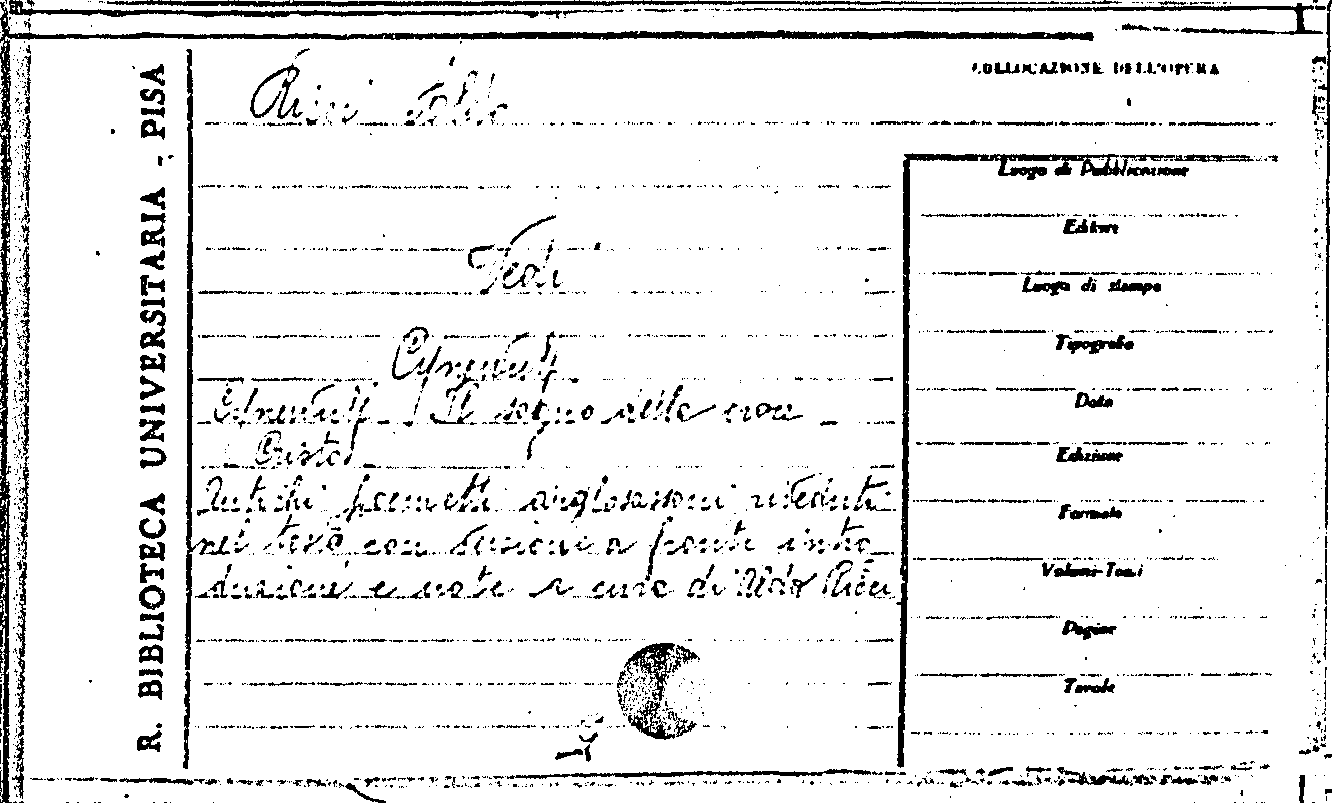 R. BIBLIOTECA UNIVERSITARIA - PISA
COLLOCAZIONE DELL'OPERA
Ricci Aldo
Vedi
Cynewulf
Cynewulf Il segno della croce
Cristo
Antichi poemetti anglosassoni riveduti
nel testo con versione a fronte intro
duzione e note a cura di Aldo Ricci
Luogo di Pubblicazione
Editore
Luogo di stampa
Tipografia
Data
Edizione
Formato
Volumi-Tomi
Pagine
Tavole